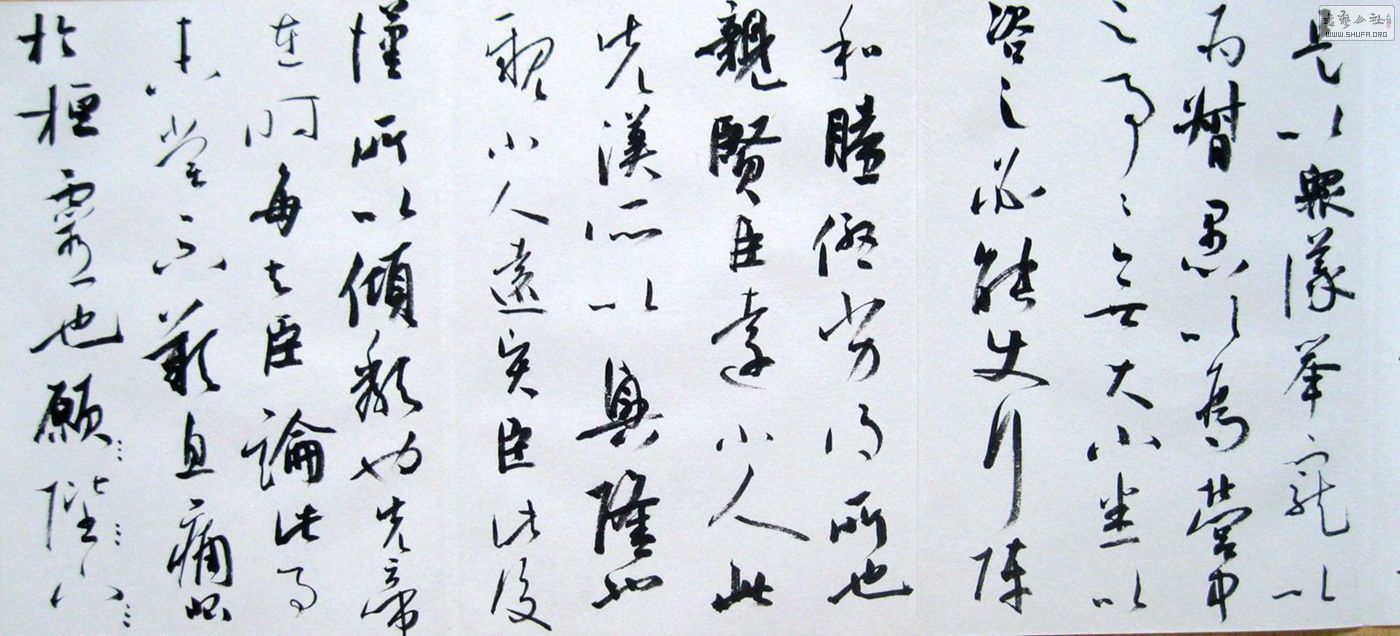 是以眾議舉寵以
為督愚以為營中
之事々無大小悉以
咨之必能使行陣
和睦優劣得所也
親賢臣遠小人此
先漢所以興隆也
親小人遠賢臣此後
漢所以傾頹也先帝
在時每與臣論此事
未嘗不歎息痛恨
於桓靈也願陛下
書藝公社
WWW.SHUFA.ORG